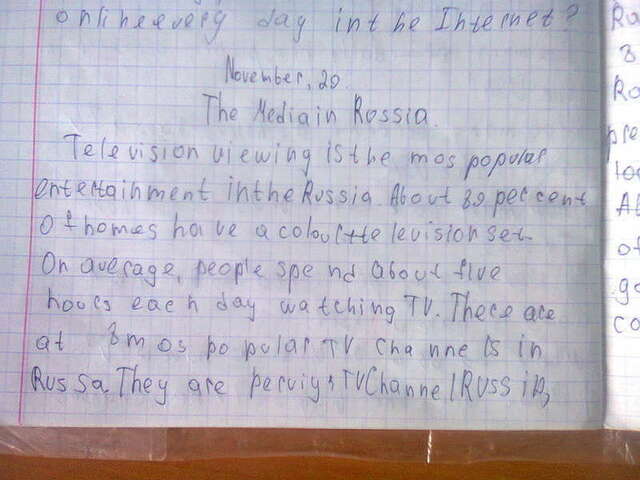 onlineevery day in the Internet?
November, 20
The Media in Russia.
Television viewing is the mos popular
entertainment in the Russia. About 89 per cent
Of homes have a colour television set.
On average, people spend about five
hours each day watching TV. There are
at 8 mos popular TV channels in
Russa. They are perviy, TVChannel RUSSIA,
Ru
8
Ro
pre
Al
of
go
co